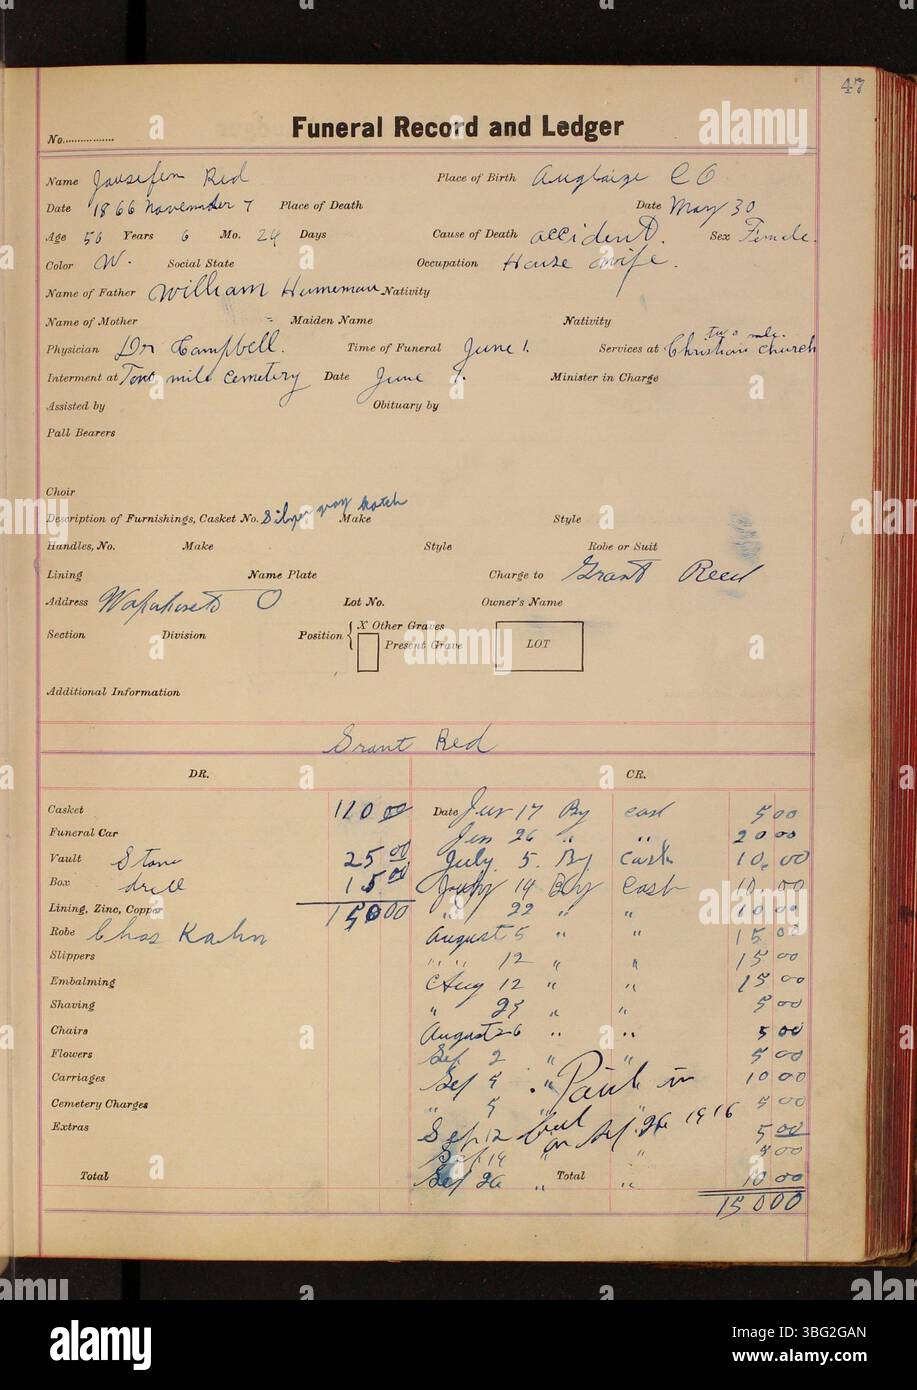 47
No.
Funeral Record and Ledger
Name Red Place of Birth Auglaize CO
Date 1866 November 7 Place of Death Date May 30
Age 56 Years 6 Mo. 24 Days Cause of Death accident. Sex Female.
Color W. Social State Occupation House wife.
Name of Father William Nativity
Name of Mother Maiden Name Nativity
two mile
Physician Dr Campbell. Time of Funeral June 1. Services at Christian church
Interment at Two mile cemetery Date June 1. Minister in Charge
Assisted by Obituary by
Pall Bearers
Choir
Description of Furnishings, Casket No. Silver gray Make Style
Handles, No. Make Style Robe or Suit
Lining Name Plate Charge to Grant Reed
Address O Lot No. Owner's Name
Section Division Position { X Other Graves
Present Grave LOT
Additional Information
Grant Red
DR. CR.
Casket 110 00 Date Jun 17 By cash 5 00
Funeral Car Jun 26 " " 20 00
Vault Stone 25 00 July. 5. By Cash 10. 00
Box 15 00 July 14 By Cash 10. 00
Lining, Zinc, Copper 150 00 " 22 " " 10 00
Robe Chas Kahn August 5 " " 15 00
Slippers " " 12 " " 15 00
Embalming Aug 12 " " 15 00
Shaving " " " 5 00
Chairs August 26 " " 5 00
Flowers Sep 2 " " 5 00
Carriages Sep 5 " Paid in 10 00
Cemetery Charges " 5 " 5 00
Extras Sep 12 full on Sep. 26 1916 5 00
Sep 19 " "
Total Sep 26 " Total " 10 00
150 00
alamy
Image ID: 3BG2GAN
www.alamy.com